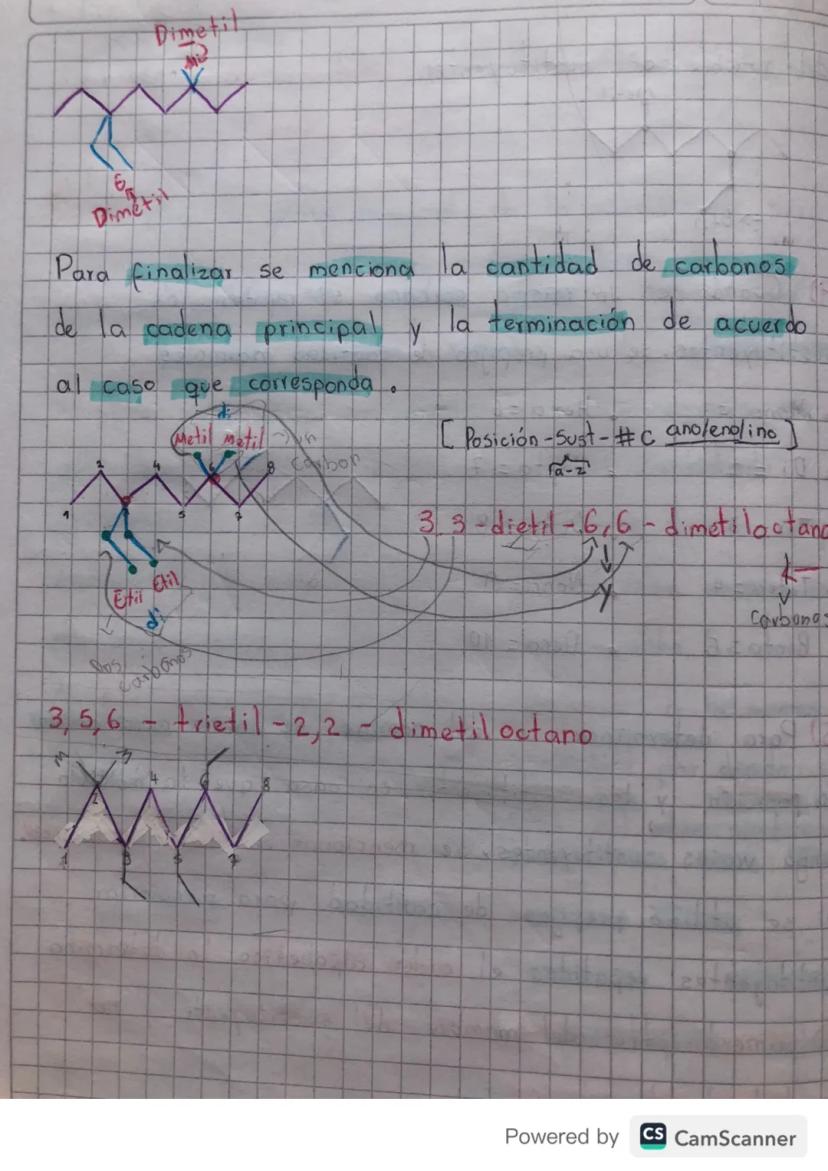 Dimetil
Dimetil
Para finalizar se menciona la cantidad de carbonos
de la cadena principal y la terminación de acuerdo
al caso que corresponda.
di
Metil Metil
un
carbon
[Posición-Sust-#C ano/eno/ino]
a-z
2 4 6 8
1 3 5 7
3 3-dietil-6,6-dimetiloctano
y
Carbonos
Etil Etil
di
Dos
carbonos
3,5,6 - trietil-2,2-dimetiloctano
2 4 6 8
1 3 5 7
Powered by CS CamScanner